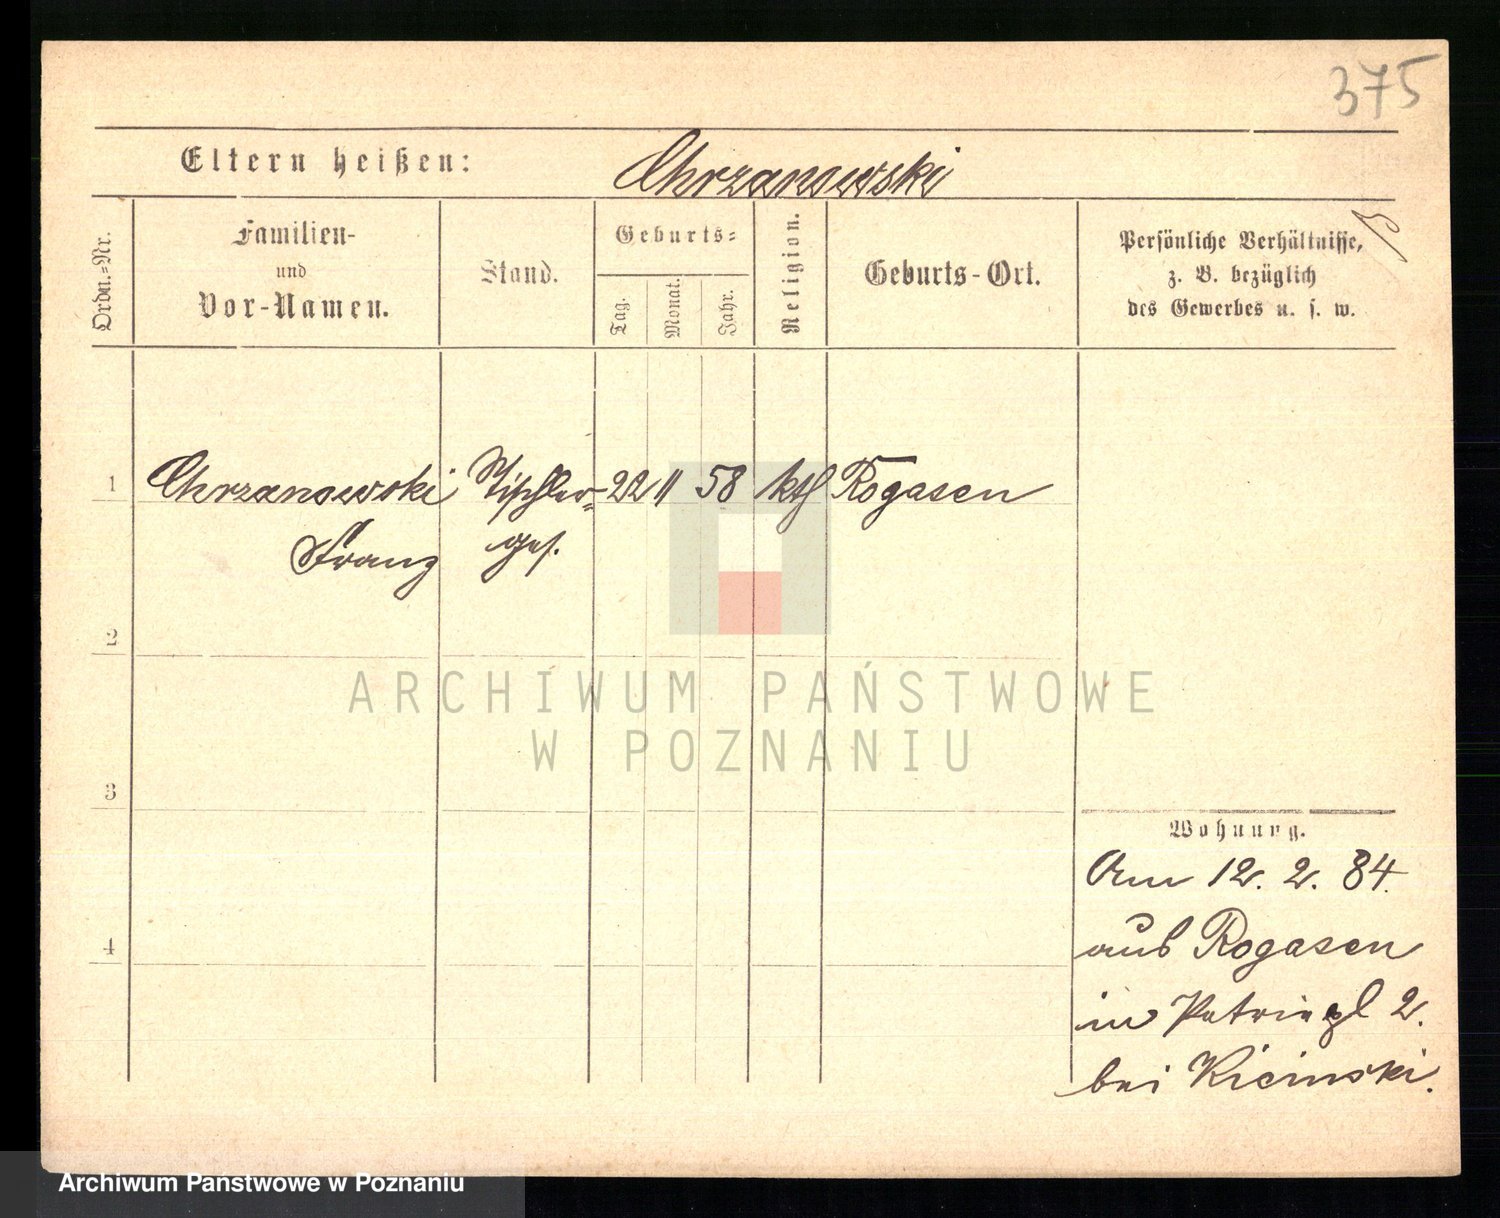 375
Eltern heißen: Chrzanowski
Ordn.-Nr.
Familien-
und
Vor-Namen.
Stand.
Geburts-
Tag.
Monat.
Jahr.
Religion.
Geburts-Ort.
Persönliche Verhältnisse,
z. B. bezüglich
des Gewerbes u. s. w.
1 Chrzanowski Tischler- 22 11 58 kth Rogasen
Franz ges.
2
ARCHIWUM PAŃSTWOWE
W POZNANIU
3
Wohnung.
Am 12. 2. 84.
aus Rogasen
4
in Petripl 2.
bei Kicinski.
Archiwum Państwowe w Poznaniu